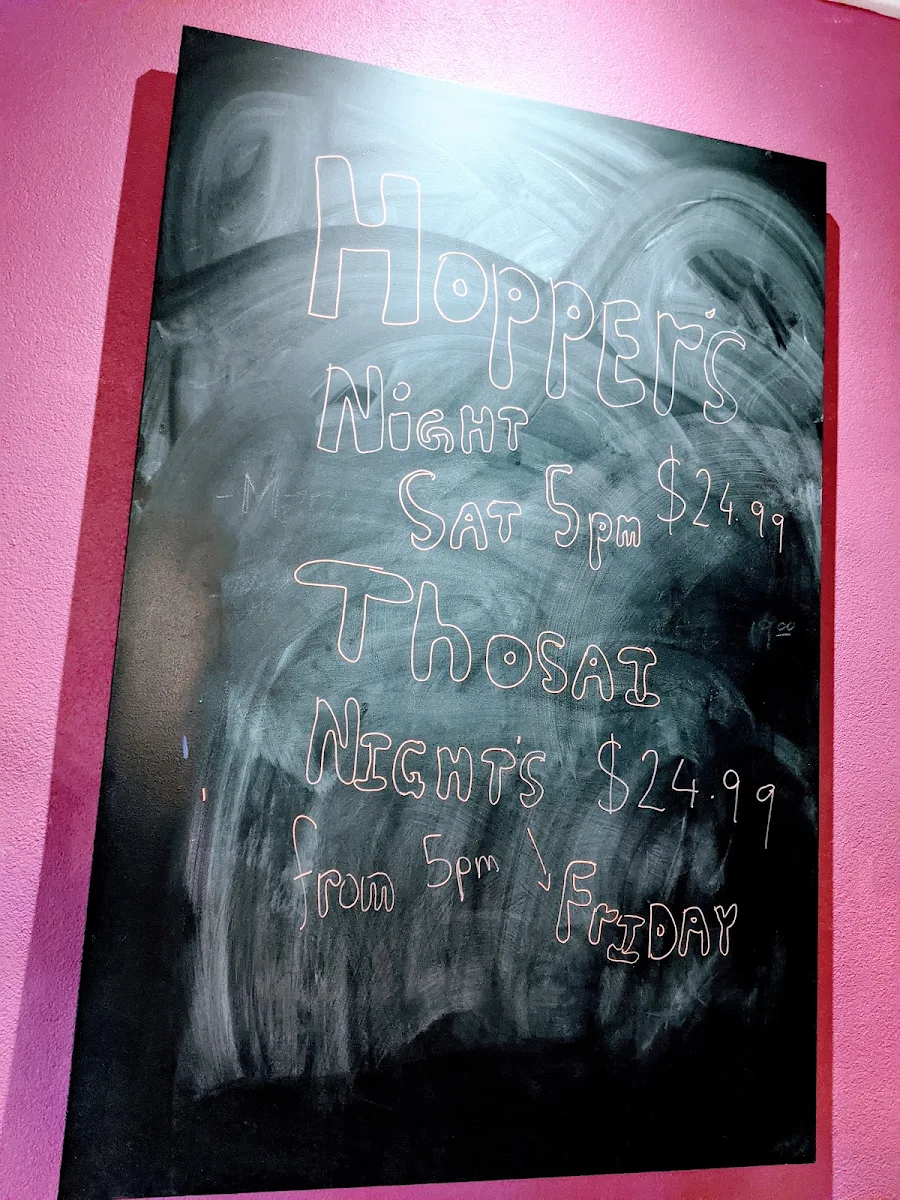 HOPPER'S
NIGHT
SAT 5pm $24.99
THOSAI
NIGHT'S $24.99
from 5pm ↘ FRIDAY